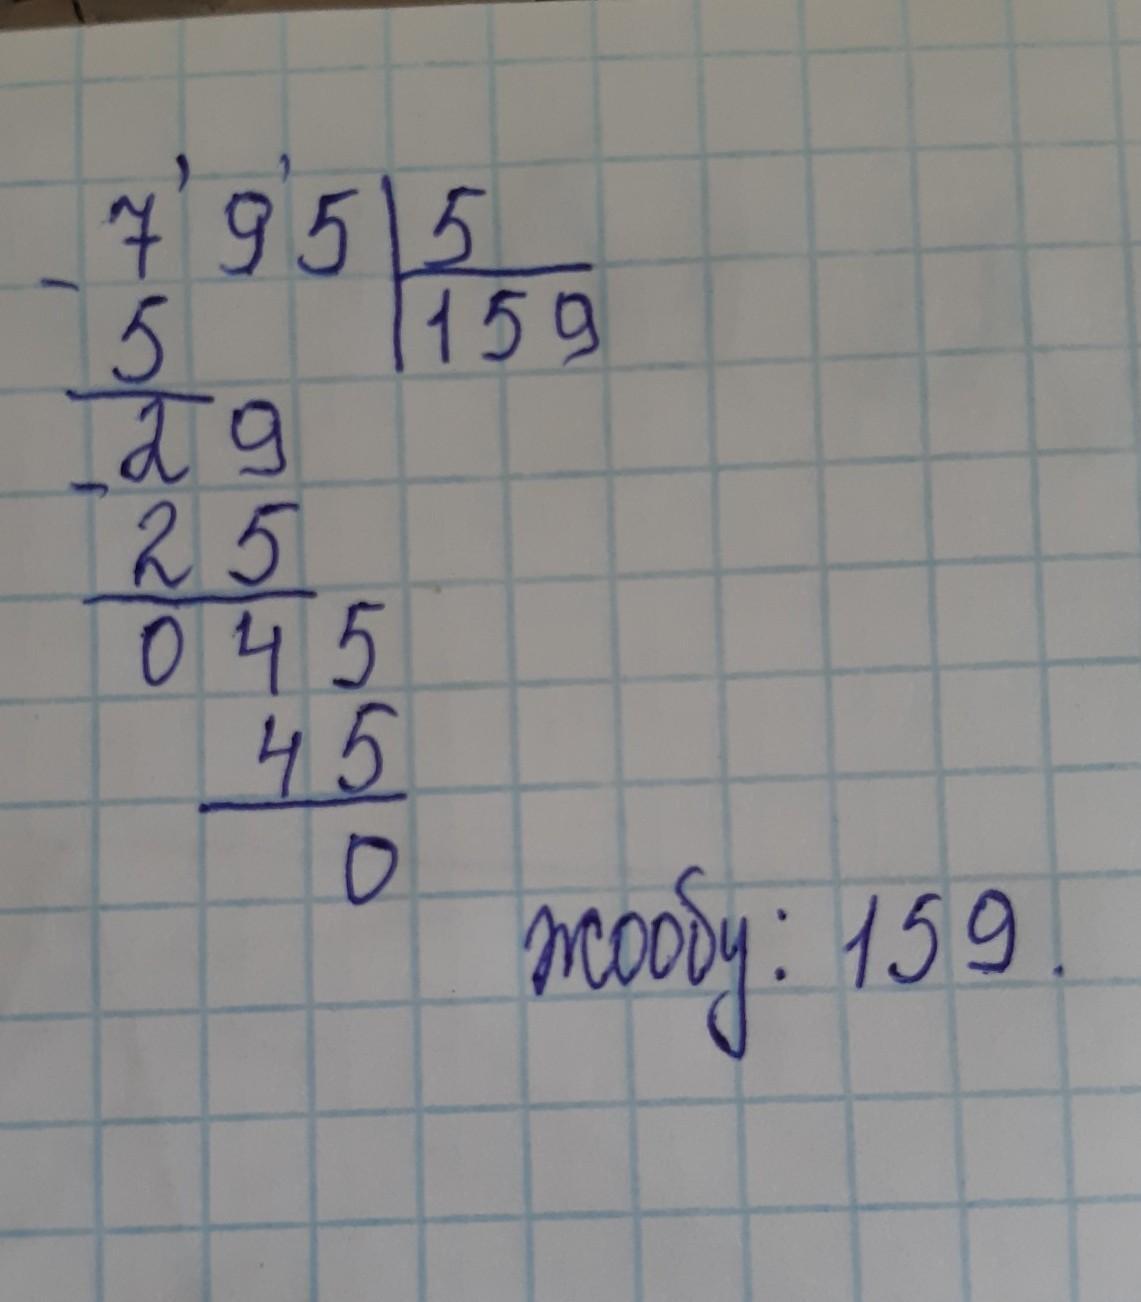 795 5
- 5 159
29
- 25
045
45
0
жообу: 159.